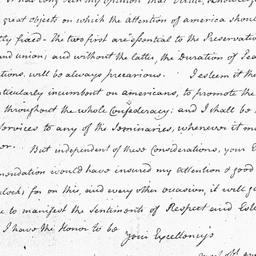 great objects on which the attention of america shou
tly fixed - the two first are essential to the Preservatio
and union; and without the latter, the Duration of Pea
tions, will be always precarious. I esteem it the
ticularly incumbent on americans, to promote the
throughout the whole Confederacy: and I shall be
services to any of the Seminaries, whenever it m
or.
But independent of these Considerations, your E
mmendation would have insured my attention & good
lock; for on this, and every other occasion, it will g
e to manifest the Sentiments of Respect and Este
I have the Honor to be
Your Excellency's